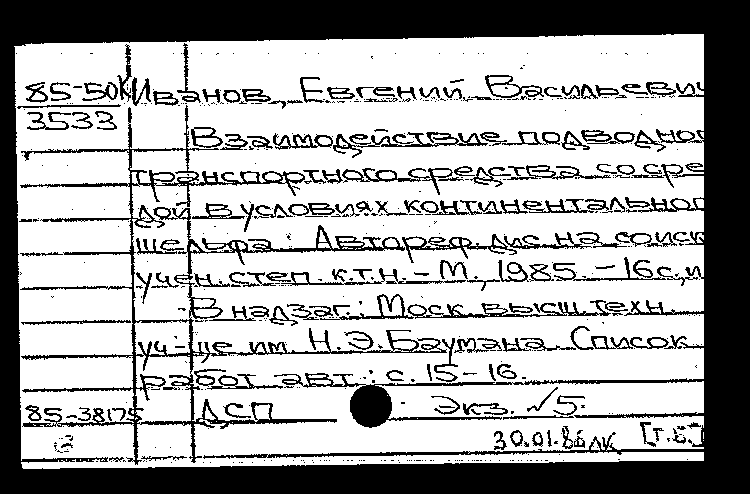 85-50К Иванов, Евгений Васильеви
3533
Взаимодействие подводног
транспортного средства со сре
дой в условиях континентальног
шельфа : Автореф. дис. на соиск
учен. степ. к.т.н. - М., 1985. - 16 с., и
В надзаг.: Моск. высш. техн.
уч-ще им. Н.Э.Баумана. Список
работ авт.: с. 15-16.
85-38175 ДСП Экз. √5.
30.01.86 лк [Т.Б.]